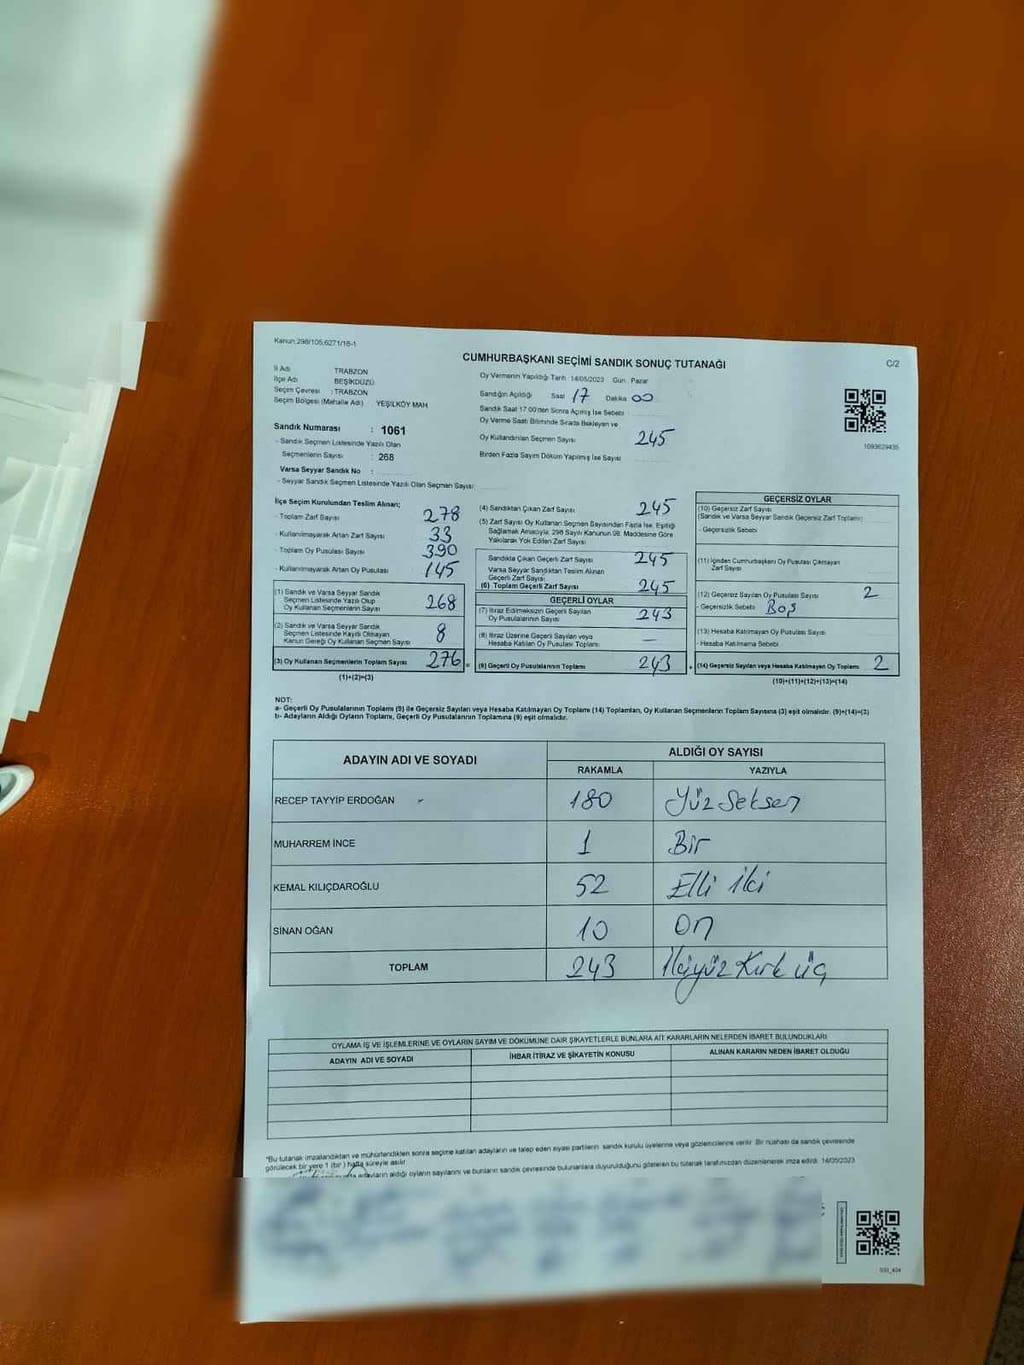 Kanun:298/105;6271/16-1
CUMHURBAŞKANI SEÇİMİ SANDIK SONUÇ TUTANAĞI
C/2
İl Adı TRABZON
İlçe Adı BEŞİKDÜZÜ
Seçim Çevresi : TRABZON
Seçim Bölgesi (Mahalle Adı) YEŞİLKÖY MAH
Sandık Numarası : 1061
- Sandık Seçmen Listesinde Yazılı Olan
Seçmenlerin Sayısı : 268
Varsa Seyyar Sandık No :
- Seyyar Sandık Seçmen Listesinde Yazılı Olan Seçmen Sayısı:
Oy Vermenin Yapıldığı Tarih 14/05/2023 Gün Pazar
Sandığın Açıldığı Saat 17 Dakika 00
Sandık Saat 17:00'den Sonra Açılmış İse Sebebi :
Oy Verme Saati Bitiminde Sırada Bekleyen ve
Oy Kullandırılan Seçmen Sayısı 245
Birden Fazla Sayım Döküm Yapılmış İse Sayısı
1093629435
İlçe Seçim Kurulundan Teslim Alınan;
- Toplam Zarf Sayısı 278
- Kullanılmayarak Artan Zarf Sayısı 33
- Toplam Oy Pusulası Sayısı 390
- Kullanılmayarak Artan Oy Pusulası 145
(1) Sandık ve Varsa Seyyar Sandık
Seçmen Listesinde Yazılı Olup
Oy Kullanan Seçmenlerin Sayısı 268
(2) Sandık ve Varsa Seyyar Sandık
Seçmen Listesinde Kayıtlı Olmayan
Kanun Gereği Oy Kullanan Seçmen Sayısı 8
(3) Oy Kullanan Seçmenlerin Toplam Sayısı 276 =
(1)+(2)=(3)
(4) Sandıktan Çıkan Zarf Sayısı 245
(5) Zarf Sayısı Oy Kullanan Seçmen Sayısından Fazla İse, Eşitliği
Sağlamak Amacıyla, 298 Sayılı Kanunun 98. Maddesine Göre
Yakılarak Yok Edilen Zarf Sayısı
Sandıkta Çıkan Geçerli Zarf Sayısı 245
Varsa Seyyar Sandıktan Teslim Alınan
Geçerli Zarf Sayısı
(6) Toplam Geçerli Zarf Sayısı 245
GEÇERLİ OYLAR
(7) İtiraz Edilmeksizin Geçerli Sayılan
Oy Pusulalarının Sayısı 243
(8) İtiraz Üzerine Geçerli Sayılan veya
Hesaba Katılan Oy Pusulası Toplamı —
(9) Geçerli Oy Pusulalarının Toplamı 243 +
GEÇERSİZ OYLAR
(10) Geçersiz Zarf Sayısı
(Sandık ve Varsa Seyyar Sandık Geçersiz Zarf Toplamı)
- Geçersizlik Sebebi
(11) İçinden Cumhurbaşkanı Oy Pusulası Çıkmayan
Zarf Sayısı
(12) Geçersiz Sayılan Oy Pusulası Sayısı 2
- Geçersizlik Sebebi Boş
(13) Hesaba Katılmayan Oy Pusulası Sayısı
- Hesaba Katılmama Sebebi
(14) Geçersiz Sayılan veya Hesaba Katılmayan Oy Toplamı 2
(10)+(11)+(12)+(13)=(14)
NOT:
a- Geçerli Oy Pusulalarının Toplamı (9) ile Geçersiz Sayılan veya Hesaba Katılmayan Oy Toplamı (14) Toplamları, Oy Kullanan Seçmenlerin Toplam Sayısına (3) eşit olmalıdır. (9)+(14)=(3)
b- Adayların Aldığı Oyların Toplamı, Geçerli Oy Pusulalarının Toplamına (9) eşit olmalıdır.
ADAYIN ADI VE SOYADI ALDIĞI OY SAYISI
RAKAMLA YAZIYLA
RECEP TAYYİP ERDOĞAN 180 Yüz Seksen
MUHARREM İNCE 1 Bir
KEMAL KILIÇDAROĞLU 52 Elli iki
SİNAN OĞAN 10 On
TOPLAM 243 İkiyüz Kırk üç
OYLAMA İŞ VE İŞLEMLERİNE VE OYLARIN SAYIM VE DÖKÜMÜNE DAİR ŞİKAYETLERLE BUNLARA AİT KARARLARIN NELERDEN İBARET BULUNDUKLARI
ADAYIN ADI VE SOYADI İHBAR İTİRAZ VE ŞİKAYETİN KONUSU ALINAN KARARIN NEDEN İBARET OLDUĞU
*Bu tutanak imzalandıktan ve mühürlendikten sonra seçime katılan adayların ve talep eden siyasi partilerin sandık kurulu üyelerine veya gözlemcilerine verilir. Bir nüshası da sandık çevresinde
görülecek bir yere 1 (bir) hafta süreyle asılır.
adayların aldığı oyların sayılarını ve bunların sandık çevresinde bulunanlara duyurulduğunu gösteren bu tutanak tarafımızdan düzenlenerek imza edildi. 14/05/2023